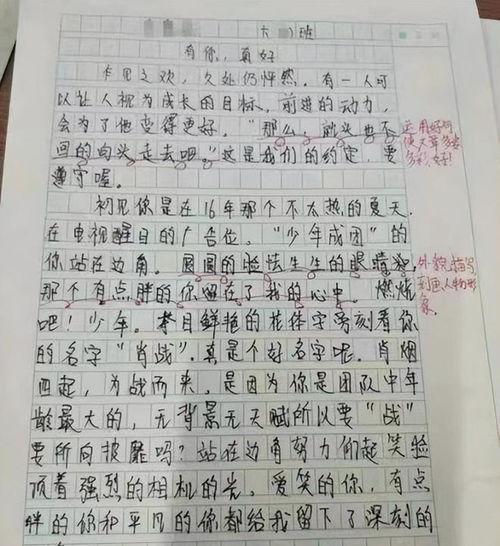 六 )班
有你,真好
乍见之欢,久处仍怦然。有一人可
以让人视为成长的目标,前进的动力,
会为了他变得更好。“那么,就头也不
回的向头走去吧。”这是我们的约定,要
遵守喔。
初见你是在16年那个不太热的夏天,
在电视醒目的广告位。“少年成团”的
你站在边角。圆圆的脸怯生生的眼睛,
那个有点胖的你留在了我的心中。燃烧
吧!少年。夺目鲜艳的花体字旁刻着你
的名字“肖战”,真是个好名字呢。肖烟
四起,为战而来,是因为你是团队中年
龄最大的,无背景无天赋所以要“战”
要所向披靡吗?站在边角努力们起笑脸
顶着强烈的相机的光。爱笑的你,有点
胖的你和平凡的你都给我留下了深刻的
运用好词
使文章多姿
多彩,好!
外貌描写
刻画人物形
象。